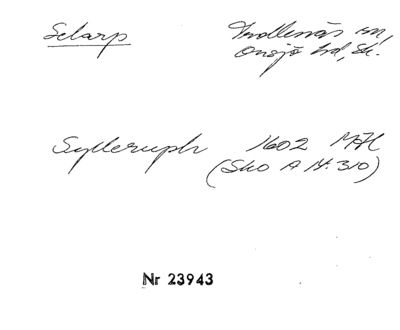 Selarp Trollenäs sn,
Onsjö hd, Sk.
Sylleruph 1602 MH
(Sko A It. 310)
Nr 23943